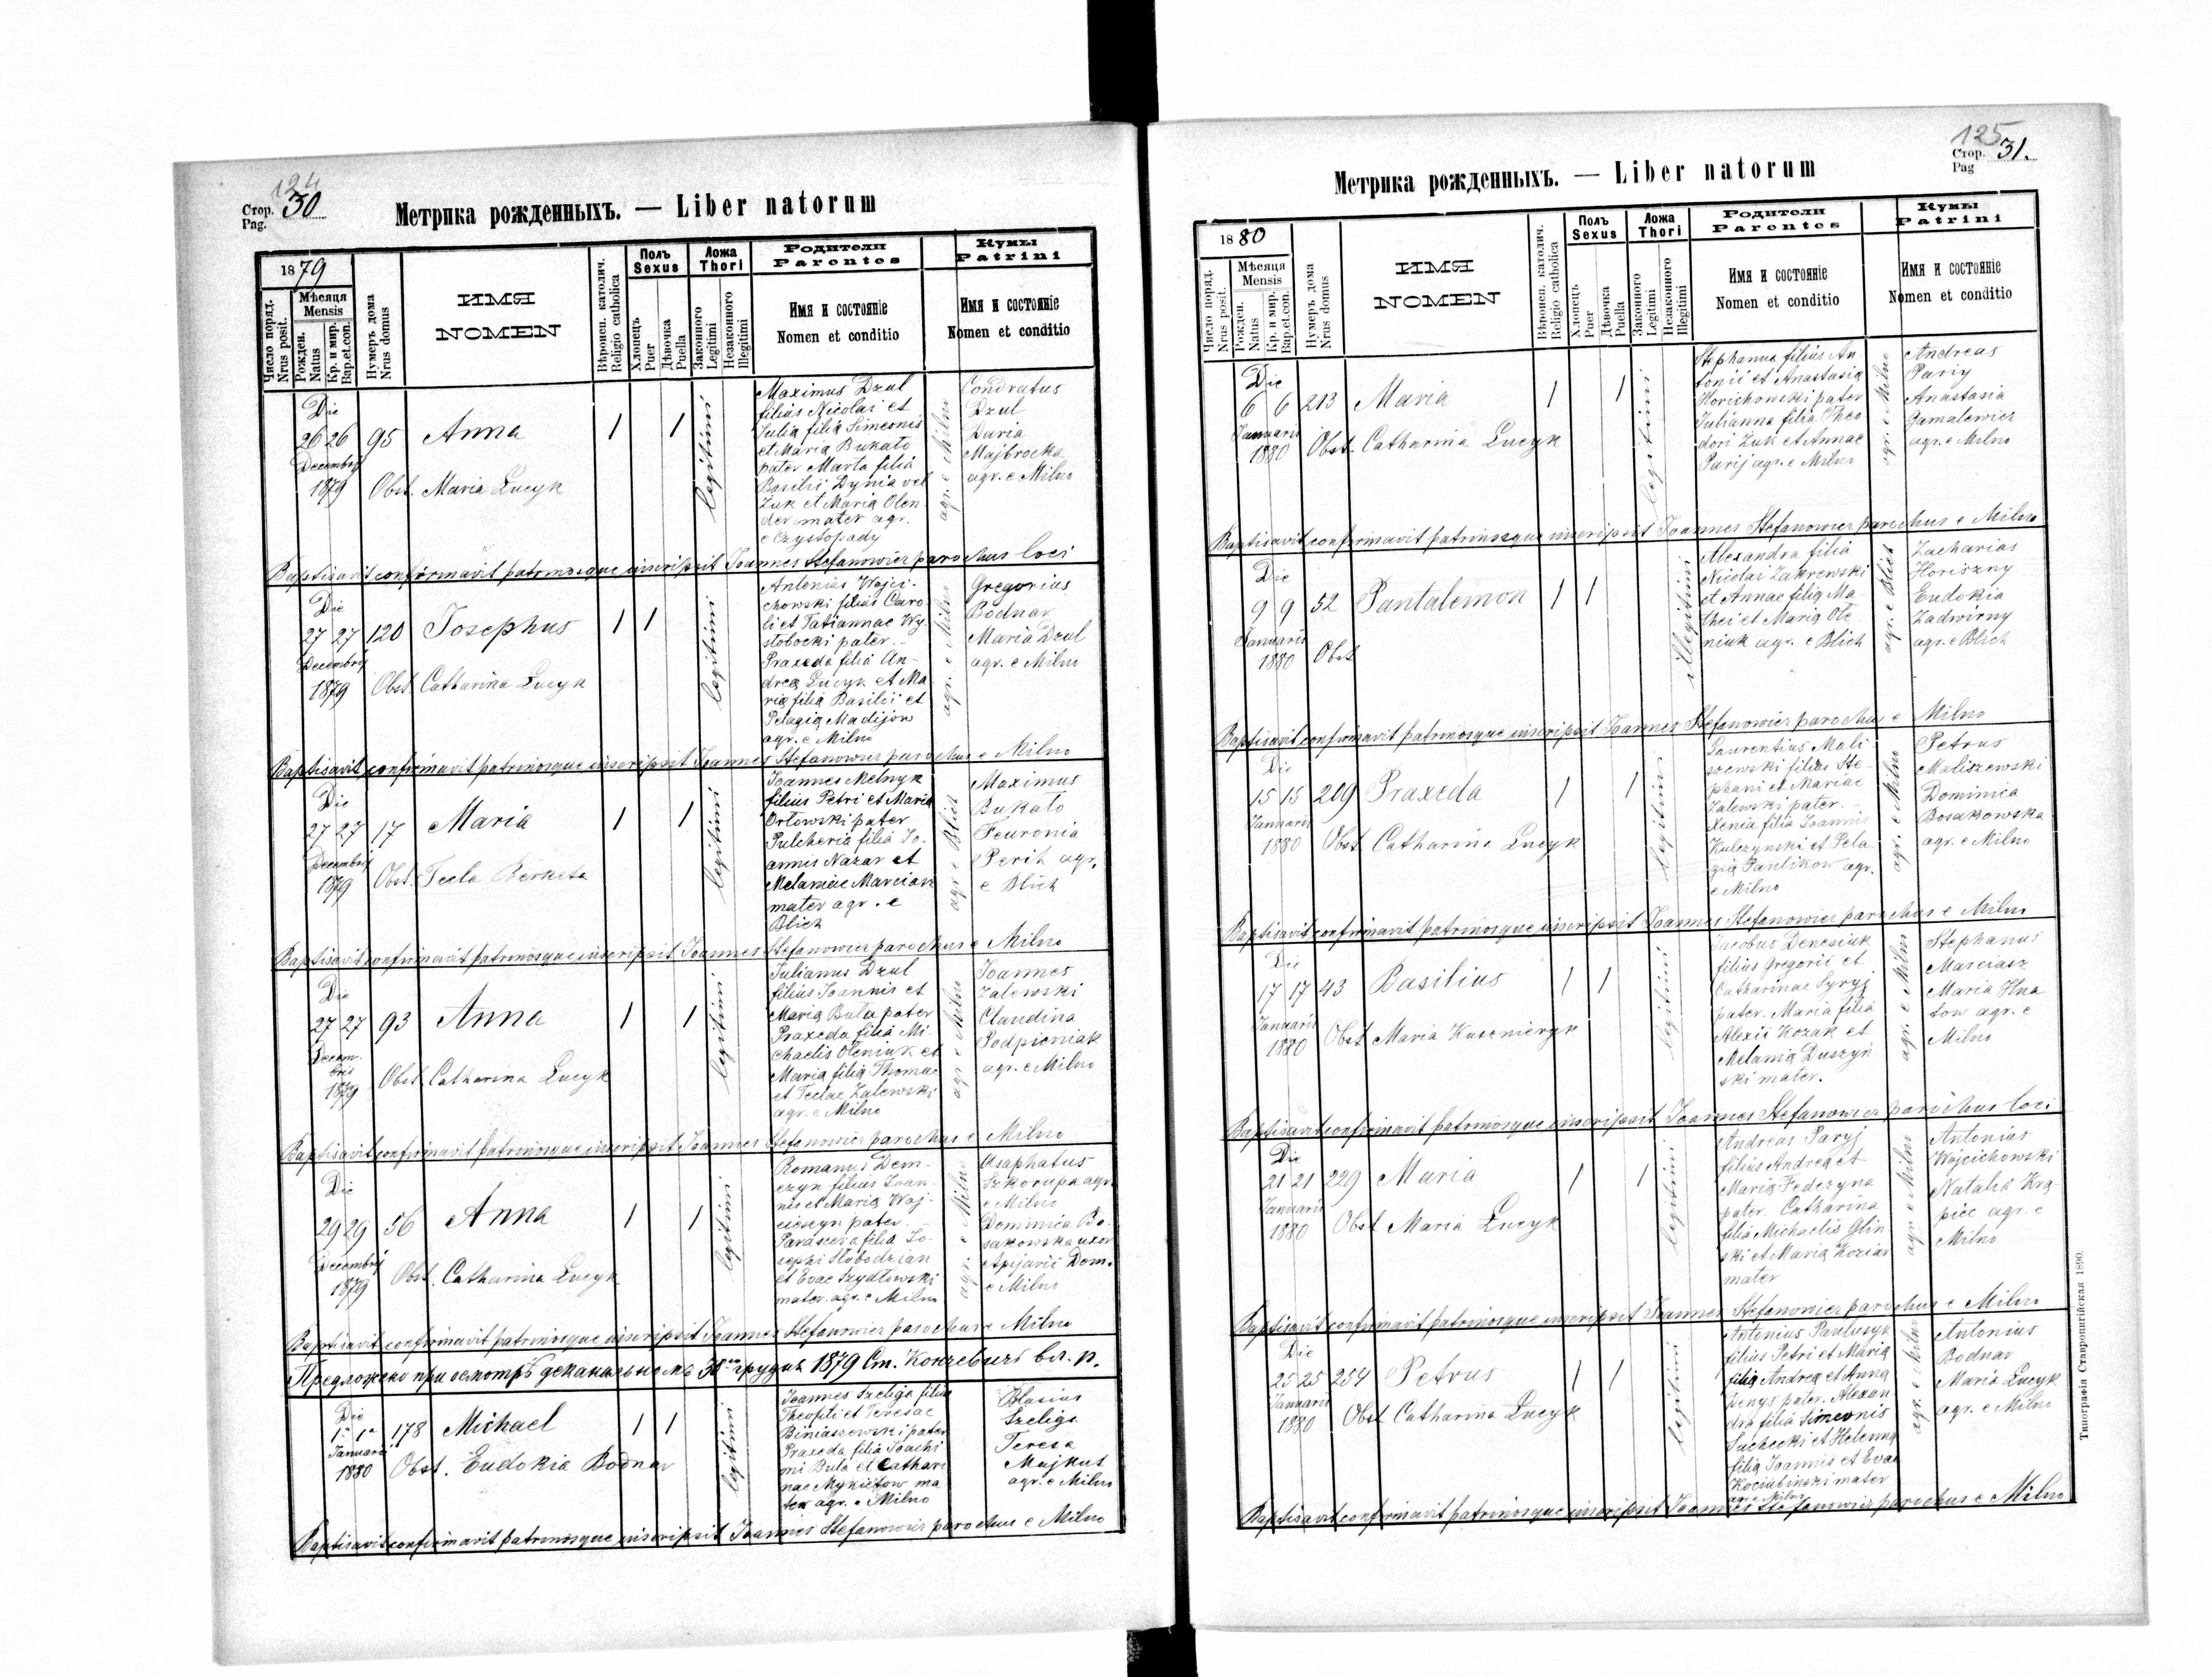 124
Стор. 30
Pag.
Метрика рожденныхъ. — Liber natorum
1879
Число поряд.
Nrus posit.
Мѣсяця
Mensis
Рожден.
Natus
Кр. и мир.
Bap.et.con.
Нумеръ дома
Nrus domus
ИМЯ
NOMEN
Вѣроисп. католич.
Religio catholica
Полъ
Sexus
Хлопецъ
Puer
Дѣвочка
Puella
Ложа
Thori
Законного
Legitimi
Незаконного
Illegitimi
Родители
Parentes
Имя и состоянiе
Nomen et conditio
Кумы
Patrini
Имя и состоянiе
Nomen et conditio
Die
26 26 95 Anna 1 1
Decembrij
1879 Obst. Maria Lucyk
legitimi
Maximus Dzul
filius Nicolai et
Julia filia Simeonis
et Maria Bukato
pater Marta filia
Basilii Dynia vel
Zuk et Maria Olen
der mater agr.
e Czystopady
agr. e Milno
Condratus
Dzul
Daria
Majbrocka
agr. e Milno
Baptisavit confirmavit patrinosque inscripsit Joannes Stefanowicz parochus loci
Die
27 27 120 Josephus 1 1
Decembrij
1879 Obst. Catharina Lucyk
legitimi
Antonius Wojci-
chowski filius Caro
li et Tatiannae Wy
stobocki pater.
Praxeda filia An-
drea Lucyk et Ma
ria filia Basilii et
Pelagia Madijow
agr. e Milno
agr. e Milno
Gregorius
Bodnar
Maria Dzul
agr. e Milno
Baptisavit confirmavit patrinosque inscripsit Joannes Stefanowicz parochus e Milno
Die
27 27 17 Maria 1 1
Decembrij
1879 Obst. Tecla Berketa
legitimi
Joannes Melnyk
filius Petri et Maria
Orłowski pater
Pulcheria filia Jo.
annis Nazar et
Melaniae Marcian
mater agr. e
Blich
agr e Blich
Maximus
Bukato
Feuronia
Perih agr.
e Blich
Baptisavit confirmavit patrinosque inscripsit Joannes Stefanowicz parochus e Milno
Die
27 27 93 Anna 1 1
Decem-
bris
1879 Obst Catharina Lucyk
legitimi
Julianus Dzul
filius Joannis et
Maria Bula pater
Praxeda filia Mi
chaelis Oleniuk et
Maria filia Thomae
et Teclae Zalewski
agr. e Milno
agr e Milno
Joannes
Zalewski
Claudina
Podpieniak
agr. e Milno
Baptisavit confirmavit patrinosque inscripsit Joannes Stefanowicz parochus e Milno
Die
29 29 56 Anna 1 1
Decembrij
1879 Obst. Catharina Lucyk
legitimi
Romanus Dem-
czyn filius Joan
nis et Maria Woj-
ciczyn pater.
Parasceva filia Jo-
sephi Słobodzian
et Evae Szydłowski
mater. agr. e Milno
agr. e Milno
Asaphatus
Szkorupa agr
e Milno
Dominica Bo-
sakowska uxor
Apijarii Dom.
e Milno
Baptisavit confirmavit patrinosque inscripsit Joannes Stefanowicz parochus e Milno
Предложено при осмотрѣ деканальномъ 30го грудня 1879 Ст. Кончевичъ вл. р.
Die
1a 1a 178 Michael 1 1
Januarii
1880 Obst. Eudokia Bodnar
legitimi
Joannes Szeliga filius
Theofili et Teresae
Biniaszewski pater
Praxeda filia Joachi
mi Bula et Cathari
nae Mykiėtow ma
ter agr. e Milno
Blasius
Szeliga
Teresa
Majkut
agr. e Milno
Baptisavit confirmavit patrinosque inscripsit Joannes Stefanowicz parochus e Milno
125
Стор. 31.
Pag
Метрика рожденныхъ. — Liber natorum
1880
Число поряд.
Nrus posit.
Мѣсяця
Mensis
Рожден.
Natus
Кр. и мир.
Bap.et.con.
Нумеръ дома
Nrus domus
ИМЯ
NOMEN
Вѣроисп. католич.
Religio catholica
Полъ
Sexus
Хлопецъ
Puer
Дѣвочка
Puella
Ложа
Thori
Законного
Legitimi
Незаконного
Illegitimi
Родители
Parentes
Имя и состоянiе
Nomen et conditio
Кумы
Patrini
Имя и состоянiе
Nomen et conditio
Die
6 6 213 Maria 1 1
Januarii
1880 Obst. Catharina Lucyk
legitimi
Stephanus filius An
tonii et Anastasia
Horichowski pater
Julianna filia Theo
dori Zuk et Annae
Parij agr. e Milno
agr. e Milno
Andreas
Pariy
Anastasia
Gamalewicz
agr. e Milno
Baptisavit confirmavit patrinosque inscripsit Joannes Stefanowicz parochus e Milno
Die
9 9 52 Pantalemon 1 1
Januarii
1880 Obst
illegitimi
Alexandra filia
Nicolai Zakrewski
et Annae filia Ma-
thei et Maria Ole
niuk agr. e Blich
agr. e Blich
Zacharias
Horiszny
Eudokia
Zadwirny
agr. e Blich
Baptisavit confirmavit patrinosque inscripsit Joannes Stefanowicz parochus e Milno
Die
15 15 209 Praxeda 1 1
Januarii
1880 Obst Catharina Lucyk
legitimi
Laurentius Mali-
szewski filius Ste-
phani et Mariae
Zalewski pater.-
Xenia filia Joannis
Kulczynski et Pela
gia Paulikow agr.
e Milno
agr. e Milno
Petrus
Maliszewski
Dominica
Bosakowska
agr. e Milno
Baptisavit confirmavit patrinosque inscripsit Joannes Stefanowicz parochus e Milno
Die
17 17 43 Basilius 1 1
Januarii
1880 Obst Maria Kusznieryk
legitimi
Jacobus Denesiuk
filius Gregorii et
Catharinae Syryj
pater. Maria filia
Alexii Kozak et
Melania Duszyń
ski mater.
agr. e Milno
Stephanus
Marciasz
Maria Hna
tow agr. e
Milno
Baptisavit confirmavit patrinosque inscripsit Joannes Stefanowicz parochus loci
Die
21 21 229 Maria 1 1
Januarii
1880 Obst Maria Lucyk
legitimi
Andreas Paryj
filius Andrea et
Maria Fedczyna
pater. Catharina
filia Michaelis Glin
ski et Maria Koziar
mater
agr e Milno
Antonius
Wojcichowski
Natalia Kra
piec agr. e
Milno
Baptisavit confirmavit patrinosque inscripsit Joannes Stefanowicz parochus e Milno
Die
25 25 254 Petrus 1 1
Januarii
1880 Obst Catharina Lucyk
legitimi
Antonius Paulusyk
filius Petri et Maria
filia Andrea et Anna
Denys pater. Alexan-
dra filia Simeonis
Suchecki et Helenna
filia Joannis et Evae
Kociubinski mater
agr. e Milno
agr. e Milno
Antonius
Bodnar
Maria Lucyk
agr. e Milno
Baptisavit confirmavit patrinosque inscripsit Joannes Stefanowicz parochus e Milno
Типографiя Ставропигiйская 1890.